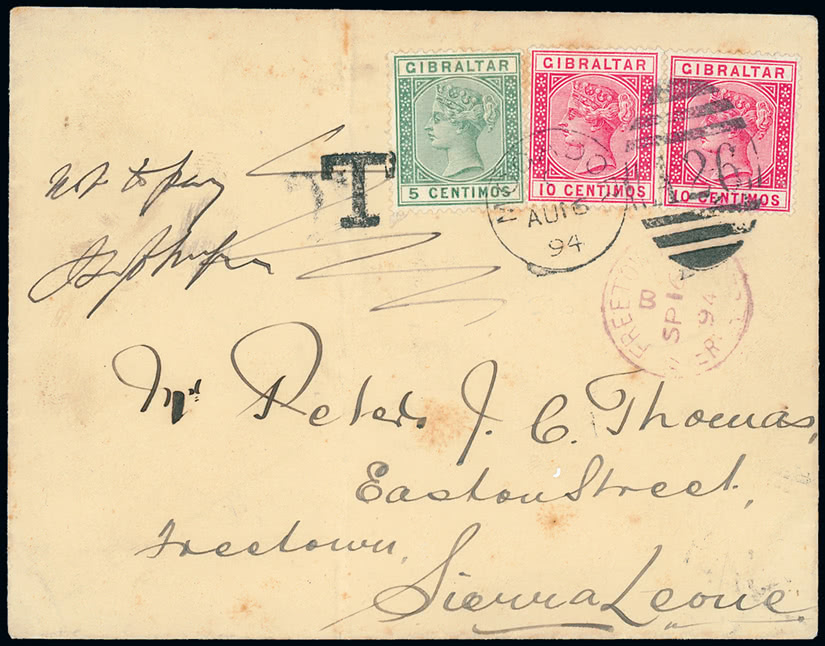 GIBRALTAR
5 CENTIMOS
GIBRALTAR
10 CENTIMOS
GIBRALTAR
10 CENTIMOS
T
AU 16
94
A26
B
SP 16
94
not to pay
Mr Peter J. C. Thomas,
Easton Street,
Freetown,
Sierra Leone